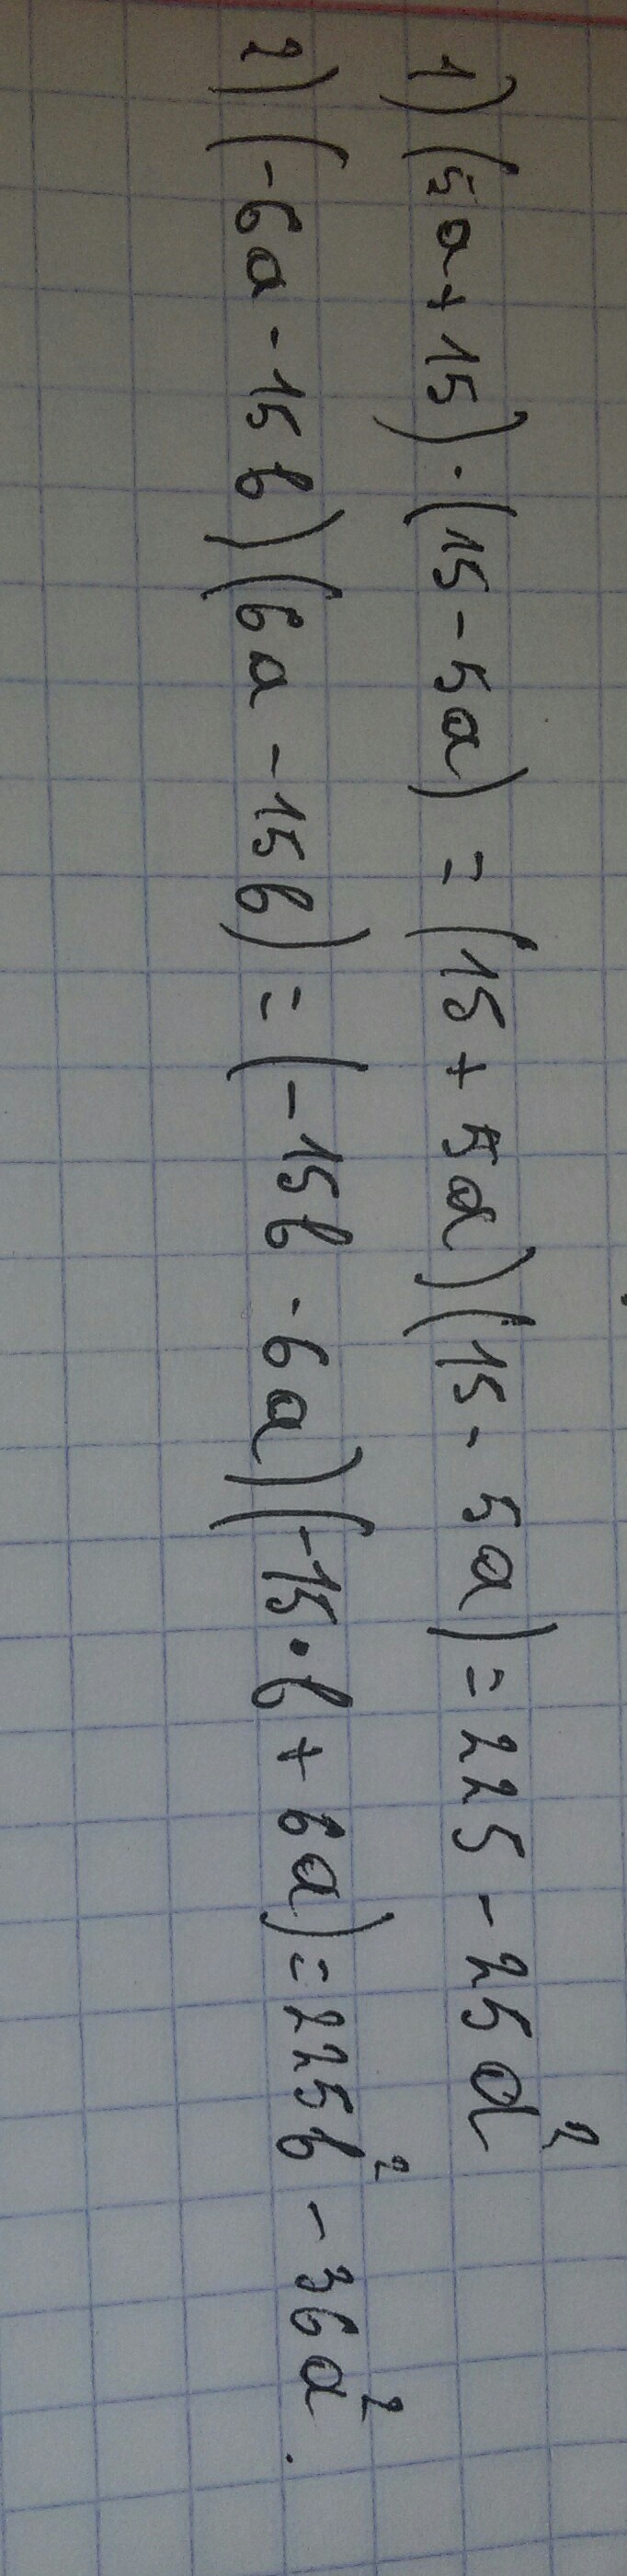 1) (5a+15)·(15-5a)=(15+5a)(15-5a)=225-25a²
2) (-6a-15b)(6a-15b)=(-15b-6a)(-15·b+6a)=225b²-36a².